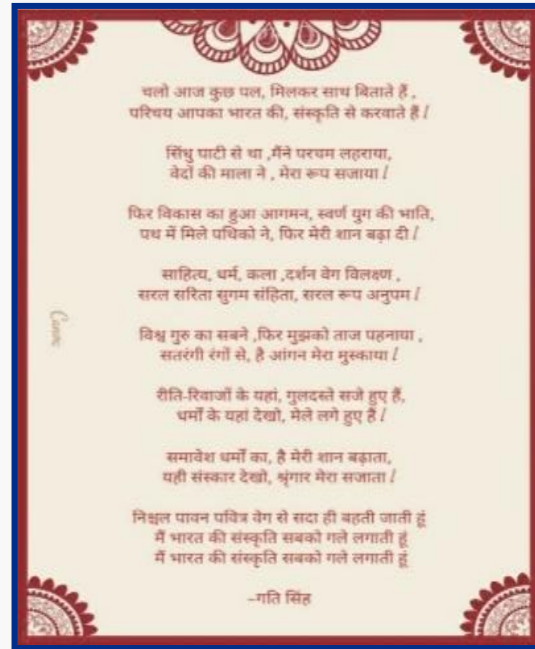 चलो आज कुछ पल, मिलकर साथ बिताते हैं ,
परिचय आपका भारत की, संस्कृति से करवाते हैं !
सिंधु घाटी से था ,मैंने परचम लहराया,
वेदों की माला ने , मेरा रूप सजाया !
फिर विकास का हुआ आगमन, स्वर्ण युग की भाति,
पथ में मिले पथिको ने, फिर मेरी शान बढ़ा दी !
साहित्य, धर्म, कला ,दर्शन वेग विलक्षण ,
सरल सरिता सुगम संहिता, सरल रूप अनुपम !
विश्व गुरु का सबने ,फिर मुझको ताज पहनाया ,
सतरंगी रंगों से, है आंगन मेरा मुस्काया !
रीति-रिवाजों के यहां, गुलदस्ते सजे हुए हैं,
धर्मों के यहां देखो, मेले लगे हुए हैं !
समावेश धर्मों का, है मेरी शान बढ़ाता,
यही संस्कार देखो, श्रृंगार मेरा सजाता !
निश्चल पावन पवित्र वेग से सदा ही बहती जाती हूं
मैं भारत की संस्कृति सबको गले लगाती हूं
मैं भारत की संस्कृति सबको गले लगाती हूं
–गति सिंह
Canva